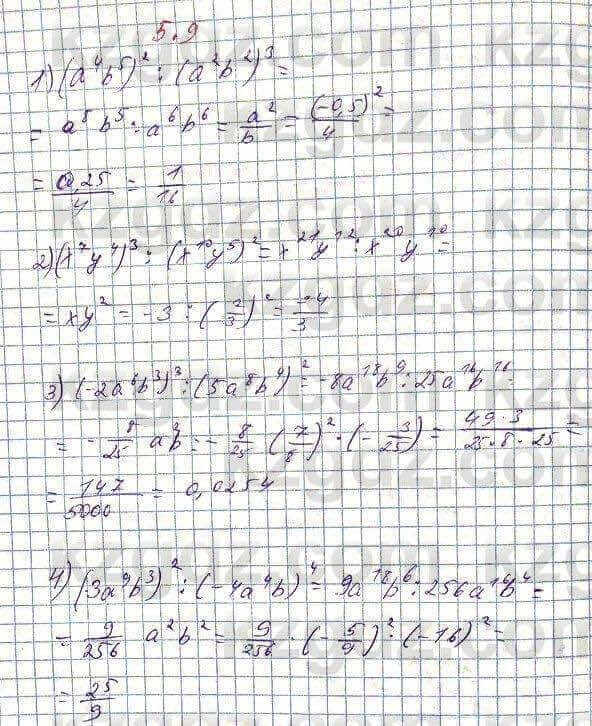 5.9
1) (a⁴b⁵)² : (a²b²)³ =
= a⁸b⁵ : a⁶b⁶ = a²/b = (-0,5)²/4 =
= 0,25/4 = 1/16
2) (x⁷y⁴)³ : (x¹⁰y⁵)² = x²¹y¹² : x²⁰y¹⁰ =
= xy² = -3 : (2/3)² = -4/3
3) (-2a⁶b³)³ : (5a⁸b⁴)² = -8a¹⁸b⁹ : 25a¹⁶b¹⁶ =
= - 8/25 ab = - 8/25 (7/8)² · (- 3/25) = 49·3/25·8·25 =
= 147/5000 = 0,0254
4) (3a⁹b³)² : (-4a⁴b)⁴ = 9a¹⁸b⁶ : 256a¹⁶b⁴ =
= 9/256 a²b² = 9/256 · (- 5/9)² · (-16)² =
= 25/9
kzgdz.com